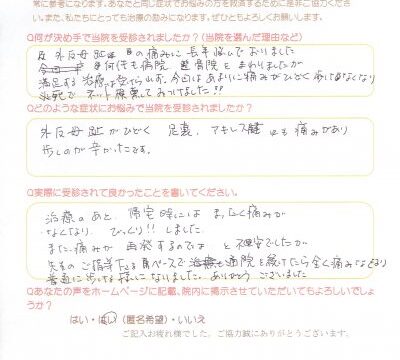 常に参考になります。あなたと同じ症状でお悩みの方を救済するために是非ご協力ください
い。また、私たちにとっても治療の励みになります。ぜひともよろしくお願いします。
Q何が決め手で当院を受診されましたか？(当院を選んだ理由など)
反 外反母趾 の痛みに長年悩んでおりました
今日 何件も病院、整骨院をまわりましたが
満足する治療は受けられず、今回はあまりに痛みがひどく歩けなくなり
必死でネット検索してみつけました!!
Qどのような症状にお悩みで当院を受診されましたか？
外反母趾がひどく 足裏、アキレス腱にも痛みがあり
歩くのが辛かったです。
Q実際に受診されて良かったことを書いてください。
治療のあと、帰宅時にはまったく痛みが
なくなり、びっくり!!しました。
また、痛みが再発するのでは、と不安でしたが
先生のご指導下さる 治療も通院を続けたら全く痛みなくなり
普通に歩ける様になりました。ありがとうございました
Qあなたの声をホームページに記載、院内に掲示させていただいてもよろしいでしょ
うか？
はい・はい(匿名希望)・いいえ
ご記入お疲れ様でした。ご協力誠にありがとうございます。